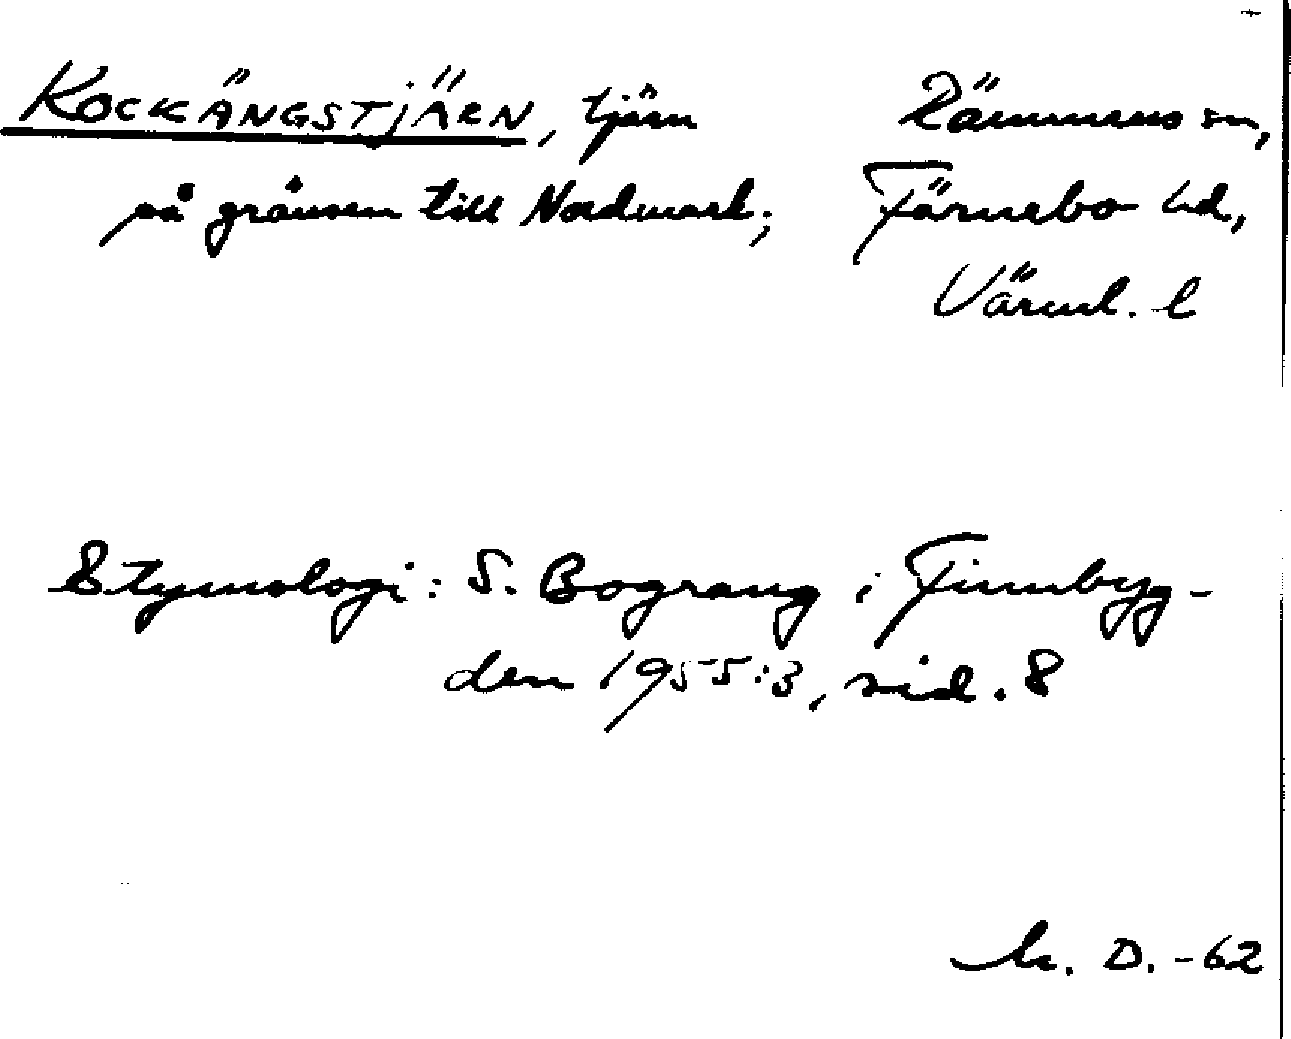 KOCKÄNGSTJÄRN, tjärn
på gränsen till Nordmark;
Rämmens sn,
Färnebo hd,
Värml. l
Etymologi: S. Bograng i Finnbyg-
den 1955:3, sid. 8
D. -62